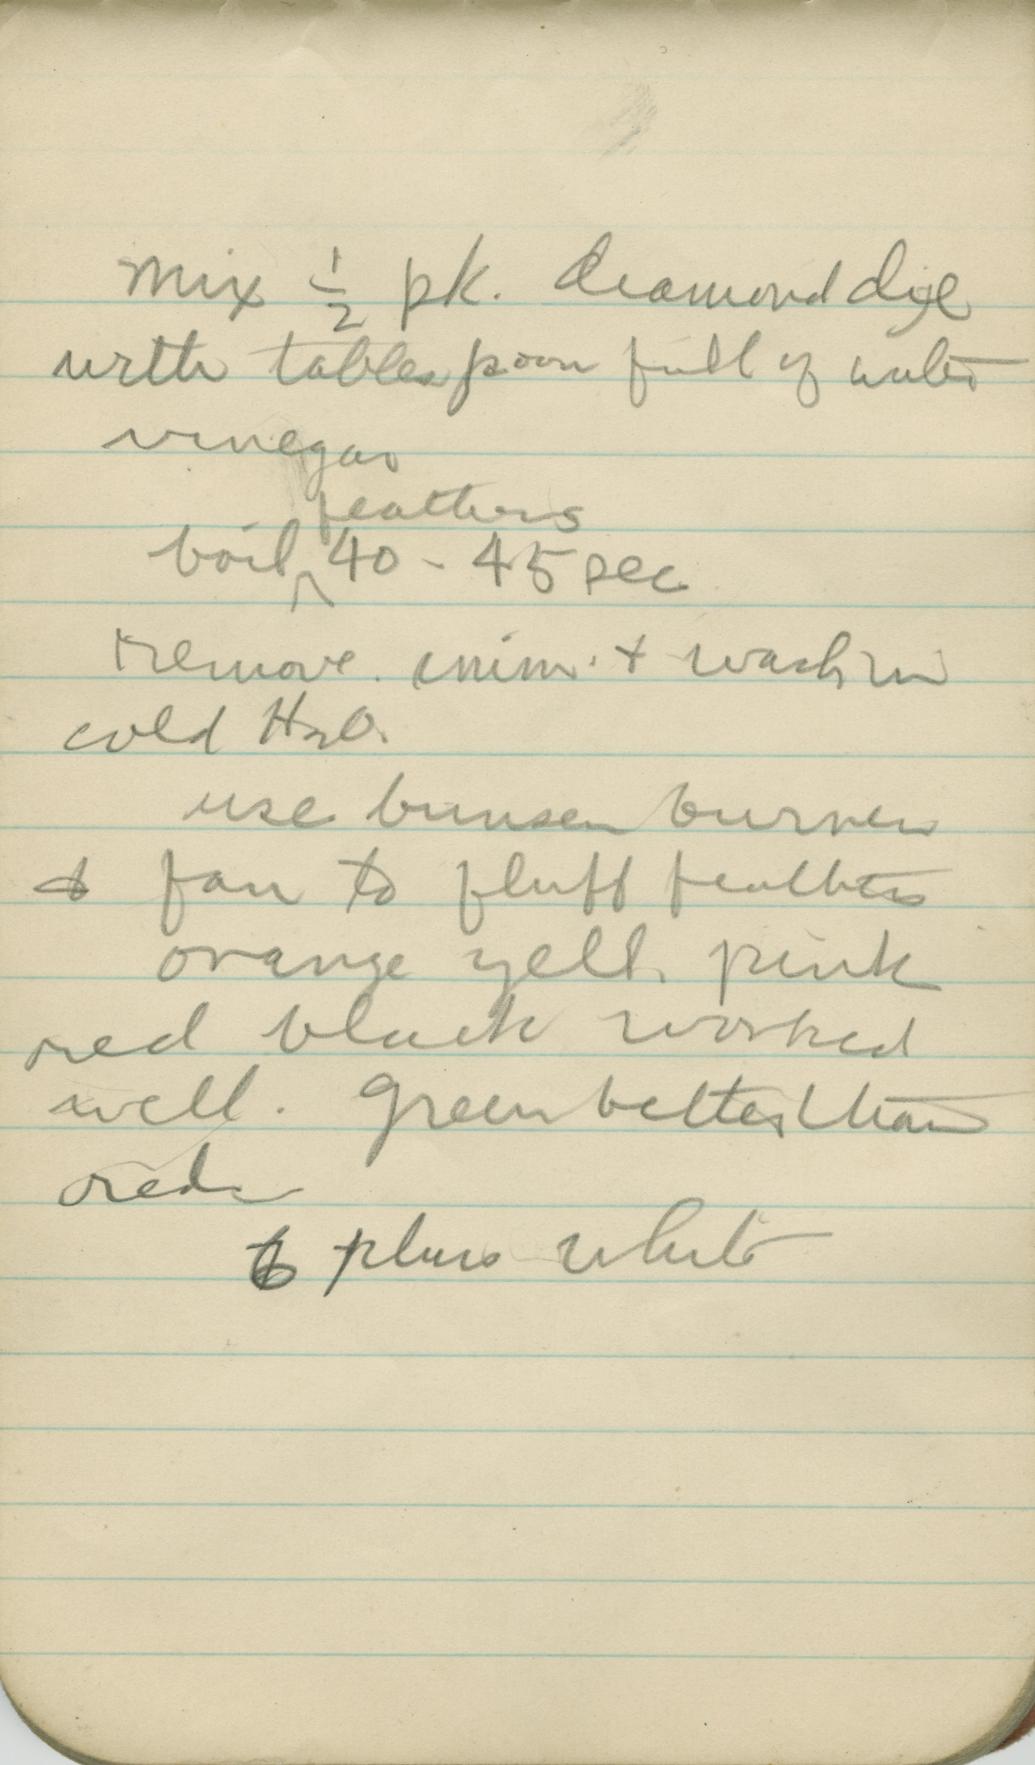 Mix ½ pk. diamond dye
with tablespoon full of water
vinegar
feathers
boil 40 - 45 sec
remove. imm. + wash in
cold H2O.
use bunsen burner
& fan to fluff feathers
orange yell. pink
red black worked
well. Green better than
red
plus white